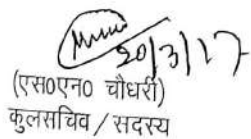 20/3/17
(एस०एन० चौधरी)
कुलसचिव / सदस्य